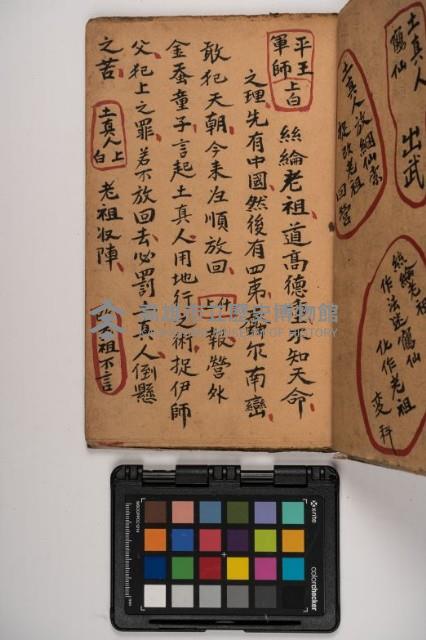 土真人
鶴仙 出武
土真人放綑仙索
老祖回營
絲綸老祖
作法 鶴仙
化作老祖
變科
平王
軍師 上白
絲綸老祖道高德重 知天命
之理先有中國然後有四 尔南蠻
敢犯天朝今來 順放回 上 報營外
金蚕童子言起土真人用地行之術捉伊師
父犯上之罪若不放回去必罰 真人倒懸
之苦 土真人上白 老祖收陣 祖不言
高雄市立歷史博物館
KAOHSIUNG MUSEUM OF HISTORY
x-rite
colorchecker